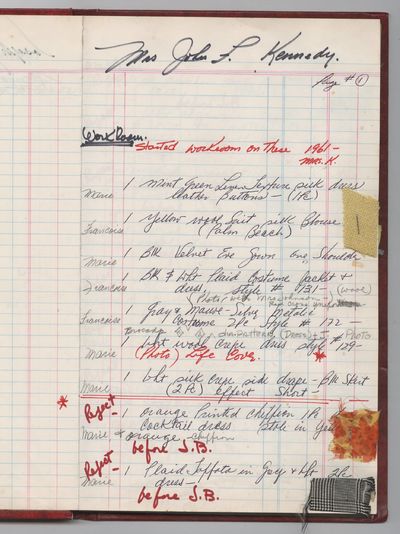 Mrs John F. Kennedy.
Page # 1
Work Room.
Started workroom on these 1961 -
Mrs. K.
1 Mint Green Linen Texture silk dress
Marie leather Buttons - (1 Pc)
1 Yellow wool Suit silk Blouse
Francoise (Palm Beach)
1 Blk Velvet Eve Gown one Shoulder
Marie
1 Blk & Wht Plaid Costume Jacket &
Francoise dress, style # 131 - (wool)
(Photo with Mrs Johnson -)
1 Gray & Mauve - Silver Metalic
Francoise Costume 2 Pc style # 172 -
Photo
1 Wht wool Crepe dress style # 129 -
Marie (Photo) Life Cover.
1 Wht silk Crepe side drape - Blk Skirt
Marie (2 Pc) effect Short -
Reject - 1 Orange Printed Chiffon 1 Pc
Cocktail dress
Marie & orange chiffon
before J.B.
Reject - 1 Plaid Taffeta in Grey & Wht 2 Pc
Marie dress -
before J.B.